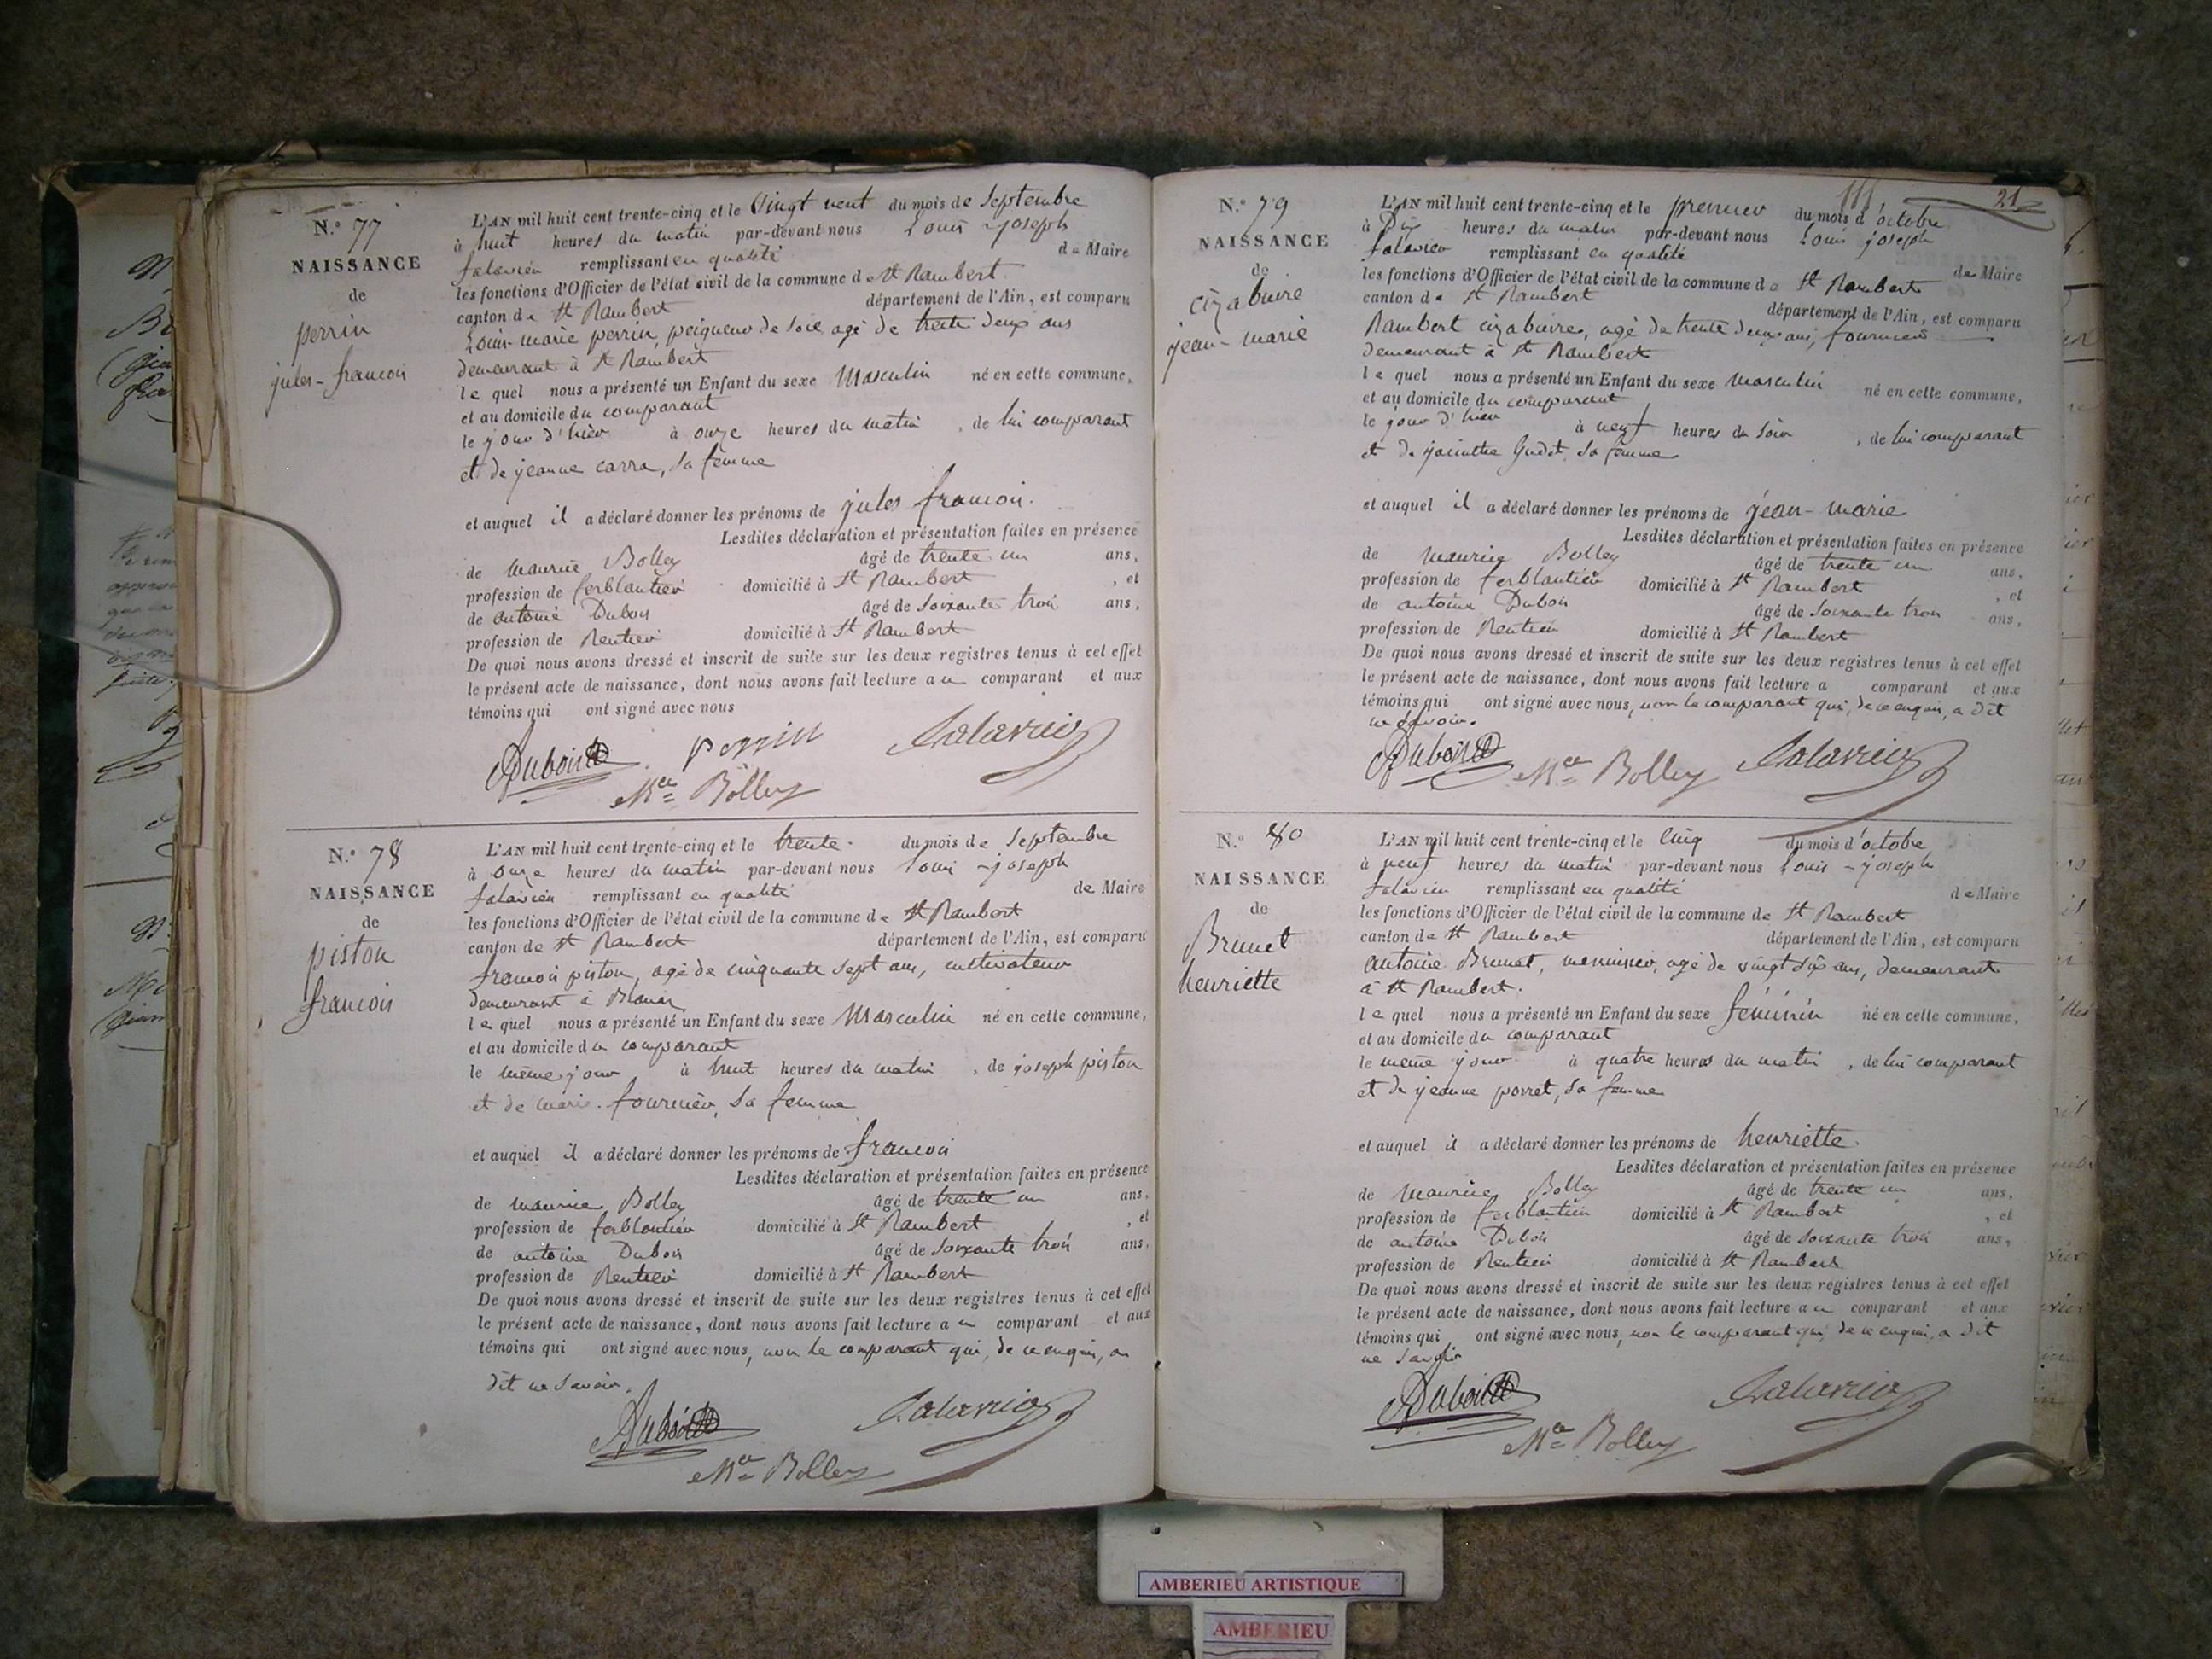 N.° 77
NAISSANCE
de
perrin
jules-francois
L'AN mil huit cent trente-cinq et le Vingt neuf du mois de Septembre
à huit heures du matin par-devant nous Louis-joseph
falavier remplissant en qualité de Maire
les fonctions d'Officier de l'état civil de la commune de St Rambert
canton de St Rambert département de l'Ain, est comparu
Louis-marie perrin, peigneur de Soie agé de trente deux ans
demeurant à St Rambert
le quel nous a présenté un Enfant du sexe Masculin né en cette commune,
et au domicile du comparant
le jour d'hier à onze heures du matin, de lui comparant
et de jeanne carra, sa femme
et auquel il a déclaré donner les prénoms de jules francois.
Lesdites déclaration et présentation faites en présence
de maurice Bolley âgé de trente un ans,
profession de ferblantier domicilié à St Rambert, et
de antoine Dubois âgé de soixante trois ans,
profession de Rentier domicilié à St Rambert
De quoi nous avons dressé et inscrit de suite sur les deux registres tenus à cet effet
le présent acte de naissance, dont nous avons fait lecture au comparant et aux
témoins qui ont signé avec nous
Dubois perrin falavier
Mce Bolley
N.° 78
NAISSANCE
de
piston
francois
L'AN mil huit cent trente-cinq et le trente du mois de Septembre
à onze heures du matin par-devant nous Louis-joseph
falavier remplissant en qualité de Maire
les fonctions d'Officier de l'état civil de la commune de St Rambert
canton de St Rambert département de l'Ain, est comparu
francois piston, agé de cinquante sept ans, cultivateur
demeurant à
le quel nous a présenté un Enfant du sexe Masculin né en cette commune,
et au domicile du comparant
le même jour à huit heures du matin, de joseph piston
et de marie fournier, sa femme
et auquel il a déclaré donner les prénoms de francois
Lesdites déclaration et présentation faites en présence
de maurice Bolley âgé de trente un ans,
profession de ferblantier domicilié à St Rambert, et
de antoine Dubois âgé de soixante trois ans,
profession de Rentier domicilié à St Rambert
De quoi nous avons dressé et inscrit de suite sur les deux registres tenus à cet effet
le présent acte de naissance, dont nous avons fait lecture au comparant et aux
témoins qui ont signé avec nous, non le comparant qui, de ce enquis, a
dit ne savoir.
Dubois falavier
Mce Bolley
21
N.° 79
NAISSANCE
de
cizabuire
jean-marie
L'AN mil huit cent trente-cinq et le premier du mois d'octobre
à Dix heures du matin par-devant nous Louis joseph
falavier remplissant en qualité de Maire
les fonctions d'Officier de l'état civil de la commune de St Rambert
canton de St Rambert département de l'Ain, est comparu
Rambert cizabuire, agé de trente deux ans, fournier
demeurant à St Rambert
le quel nous a présenté un Enfant du sexe masculin né en cette commune,
et au domicile du comparant
le jour d'hier à neuf heures du soir, de lui comparant
et de jacinthe Gudet, sa femme
et auquel il a déclaré donner les prénoms de jean-marie
Lesdites déclaration et présentation faites en présence
de maurice Bolley âgé de trente un ans,
profession de ferblantier domicilié à St Rambert, et
de antoine Dubois âgé de soixante trois ans,
profession de Rentier domicilié à St Rambert
De quoi nous avons dressé et inscrit de suite sur les deux registres tenus à cet effet
le présent acte de naissance, dont nous avons fait lecture a comparant et aux
témoins qui ont signé avec nous, non le comparant qui, de ce enquis, a dit
ne savoir.
Dubois Mce Bolley falavier
N.° 80
NAISSANCE
de
Brunet
henriette
L'AN mil huit cent trente-cinq et le Cinq du mois d'octobre
à neuf heures du matin par-devant nous Louis-joseph
falavier remplissant en qualité de Maire
les fonctions d'Officier de l'état civil de la commune de St Rambert
canton de St Rambert département de l'Ain, est comparu
antoine Brunet, menuisier, agé de vingt six ans, demeurant
à St Rambert.
le quel nous a présenté un Enfant du sexe féminin né en cette commune,
et au domicile du comparant
le même jour à quatre heures du matin, de lui comparant
et de jeanne porret, sa femme
et auquel il a déclaré donner les prénoms de henriette.
Lesdites déclaration et présentation faites en présence
de maurice Bolley âgé de trente un ans,
profession de ferblantier domicilié à St Rambert, et
de antoine Dubois âgé de soixante trois ans,
profession de Rentier domicilié à St Rambert
De quoi nous avons dressé et inscrit de suite sur les deux registres tenus à cet effet
le présent acte de naissance, dont nous avons fait lecture au comparant et aux
témoins qui ont signé avec nous, non le comparant qui, de ce enquis, a dit
ne savoir
Dubois falavier
Mce Bolley
AMBERIEU ARTISTIQUE
AMBERIEU